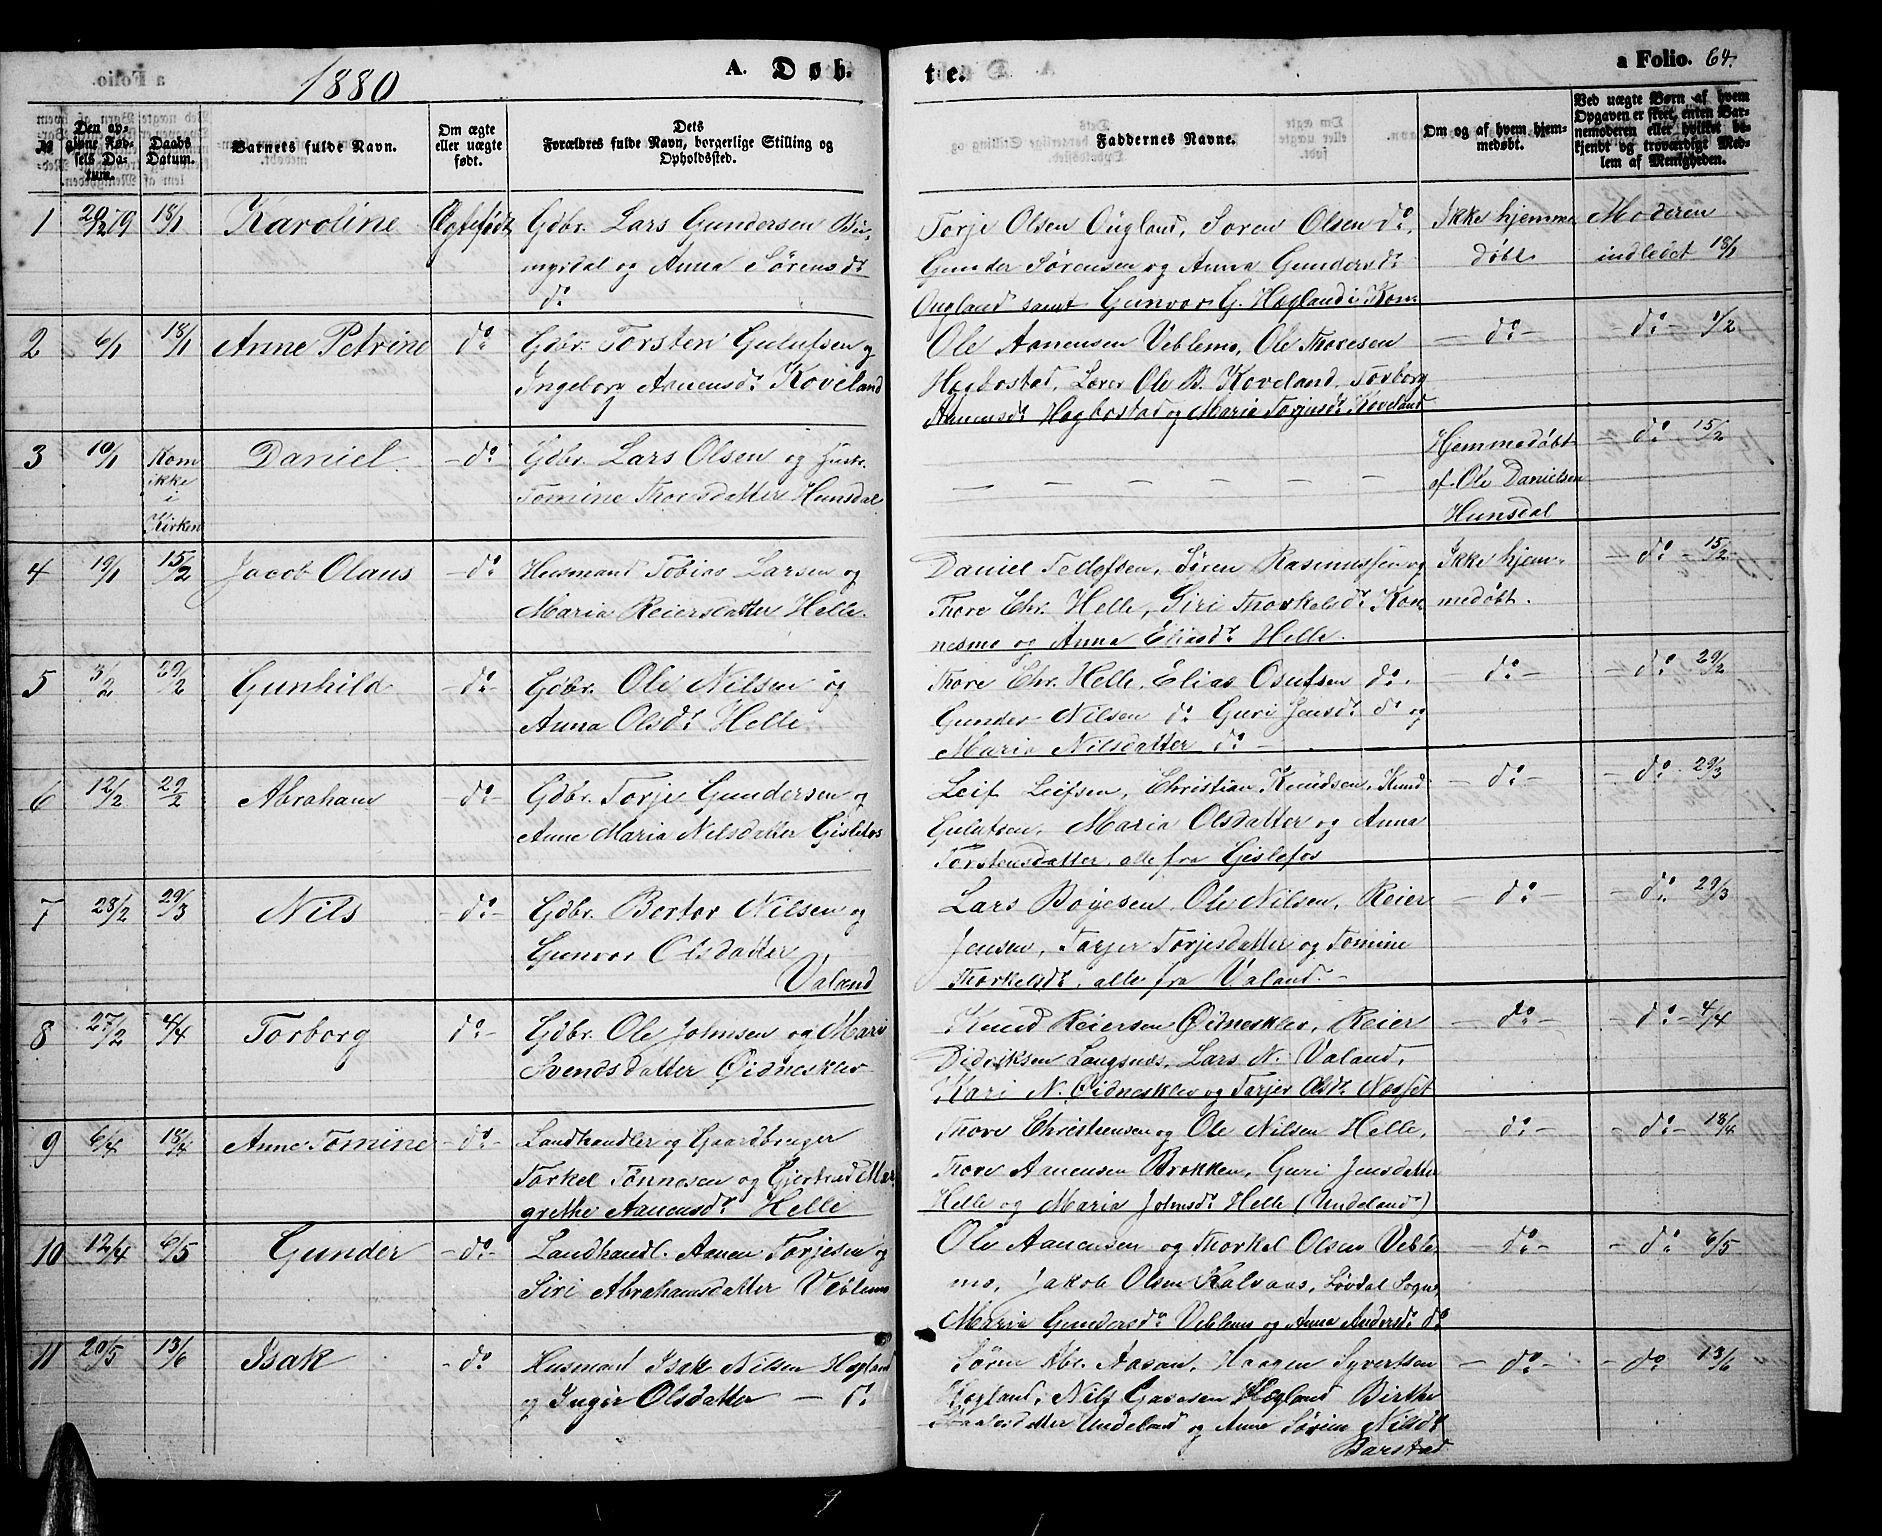 1880
A. Døb-
te.
a Folio. 64.
№
Den opgivne Fødsels Datum.
Daabs Datum.
Barnets fulde Navn.
Om ægte eller uægte født.
Dets Forældres fulde Navn, borgerlige Stilling og Opholdssted.
Faddernes Navne.
Om og af hvem hjemmedøbt.
Ved uægte Børn af hvem Opgaven er skeet, enten Barnemoderen eller hvilket bekjendt og troværdigt Medlem af Menigheden.
1 29/12 79 18/1 Karoline Ægtefødt Gdbr. Lars Gundersen
myrdal og Anna Sørensdr
do
Torje Olsen Ougland, Soren Olsen do,
Gunder Sørensen og Anna Gundersdr
Ougland samt Gunvor G. Hegland i Kon.
Ikke hjemme
døbt
Moderen
indledet 18/1
2 6/1 18/1 Anne Petrine do Gdbr. Torsten Gulufsen og
Ingeborg Aanensdr Koveland
Ole Aanensen Veblemo, Ole Thovesen
Hægbostad, Lærer Ole B. Koveland, Torborg
Aanensdr Hægbostad og Maria Torjusdr Koveland
— do — — do — 1/2
3 10/1 Kom
ikke
i
Kirken
Daniel — do Gdbr. Lars Olsen og Hustr.
Tomine Thorsdatter Hunsdal
Hjemmedøbt
af Ole Danielsen
Hunsdal
— do 15/2
4 19/1 15/2 Jacob Olaus — do Husmand Tobias Larsen og
Maria Reiersdatter Helle.
Daniel Tedlefsen, Søren Rasmussen og
Thore Chr. Helle, Siri Thorkelsdr Kon-
nesmo og Anna Eliasdr Helle.
Ikke hjem-
medøbt.
— do — 15/2
5 3/2 29/2 Gunhild — do — Gdbr. Ole Nilsen og
Anna Olsdr Helle
Thore Chr. Helle, Elias Osufsen do.
Gunder Nilsen do Guri Jensdr do og
Maria Nilsdatter do —
— do — — do 29/2
6 12/2 29/2 Abraham — do — Gdbr. Torje Gundersen og
Anne Maria Nilsdatter Gislefos
Leif Leifsen, Christian Knudsen, Knud
Gulufsen, Maria Olsdatter og Anna
Torstensdatter, alle fra Gislefos
— do — — do 29/3
7 28/2 29/3 Nils — do — Gdbr. Berter Nilsen og
Gunvor Olsdatter
Valand
Lars Boyesen, Ole Nilsen, Reier
Jensen, Tarjer Torjesdatter og Tomine
Thorkelsdr, alle fra Valand. —
— do — — do 29/3
8 27/2 4/4 Torborg do — Gdbr. Ole Johnsen og Mari
Svendsdatter Øidneskler
Knud Reiersen Øidneskler, Reier
Didriksen Langsnæs, Lars N. Valand,
Kari N. Øidneskler og Tarjer Olsdr Næsset
— do — — do — 4/4
9 6/4 18/4 Anne Tomine — do — Landhandler og Gaardbruger
Torkel Tønnesen og Gjertrud Mar
grethe Aanensdr Helle
Thore Christensen og Ole Nilsen Helle,
Thore Aanensen Brokken, Guri Jensdatter
Helle og Maria Johnsdr Helle (Undeland)
— do — — do — 18/4
10 12/4 6/5 Gunder — do — Landhandl. Aanen Torjesen og
Siri Abrahamsdatter Veblemo
Ole Aanensen og Thorkel Olsen Veble-
mo, Jakob Olsen Kalvaas, Løvdal Sogn,
Maria Gundersdr Veblemo og Anna Andersdr do
do — — do 6/5
11 20/5 13/6 Isak — do Husmand Isak Nilsen Hegland
og Inger Olsdatter — do
Søren Abr. Aasan, Haagen Syvertsen
Hegland, Nils Hegland Birthe
Undeland og Anne Sørine Nilsdr
Barstad
— do — — do 13/6